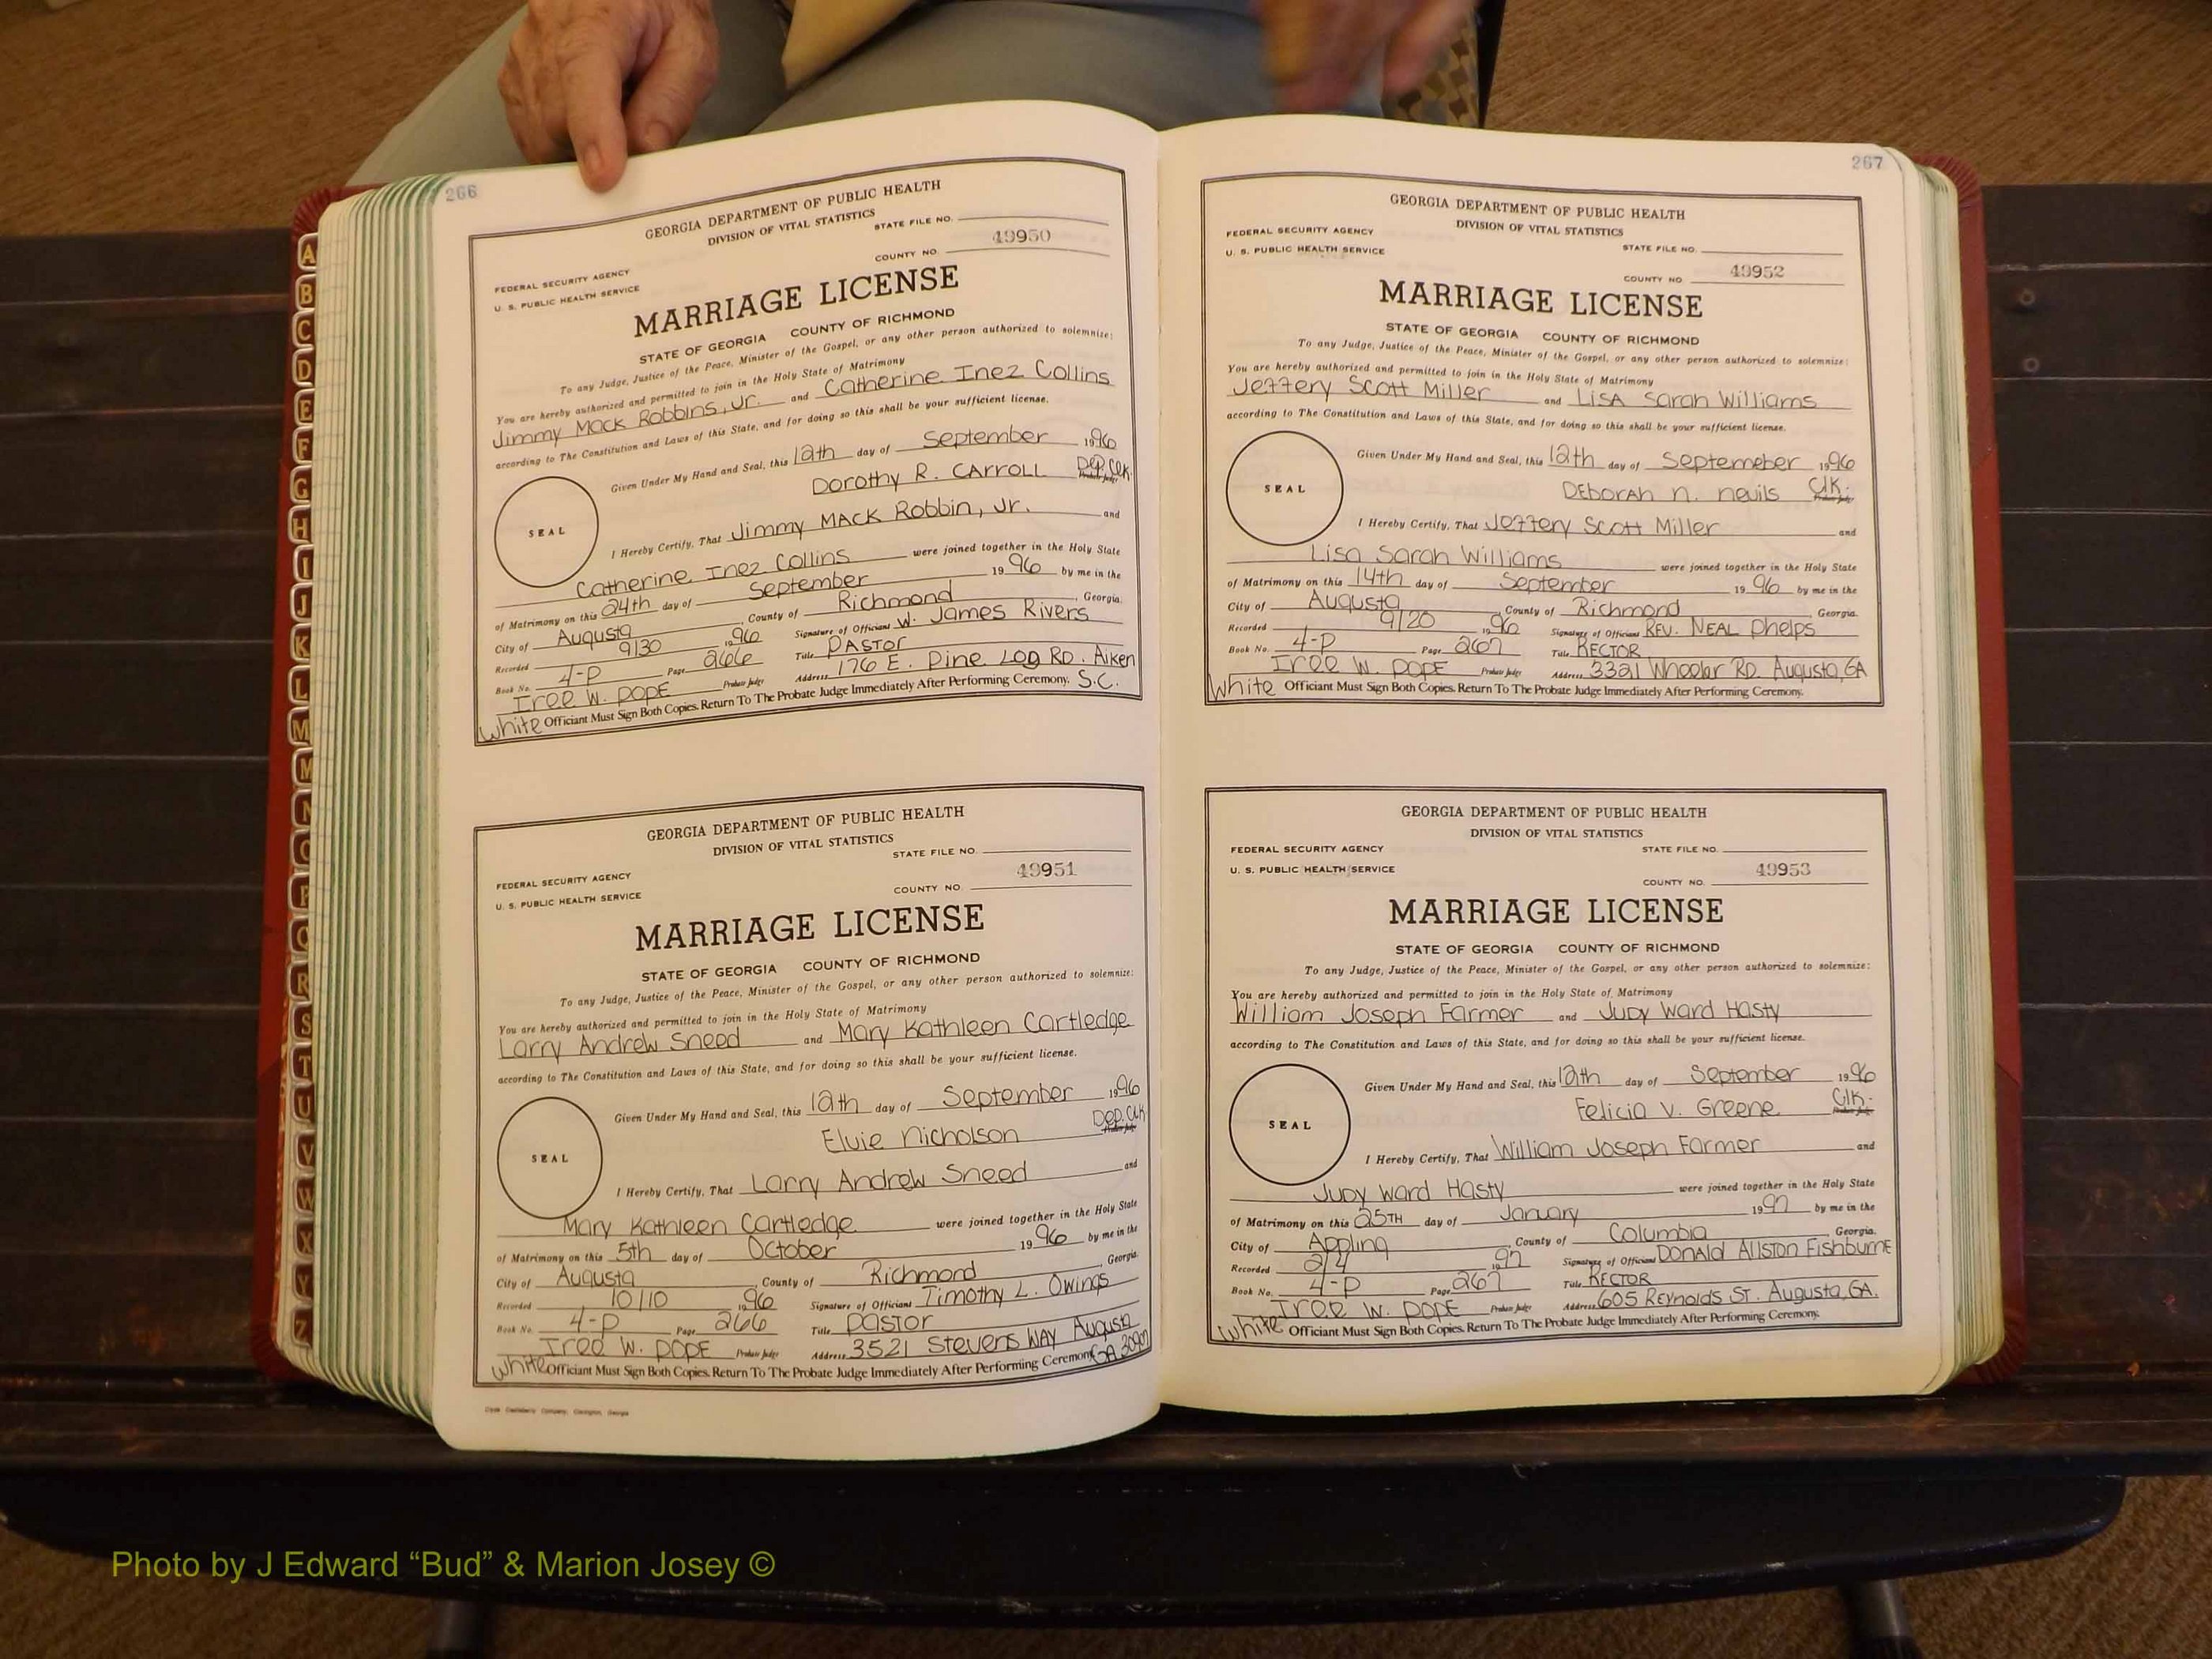 266
GEORGIA DEPARTMENT OF PUBLIC HEALTH
DIVISION OF VITAL STATISTICS
STATE FILE NO.
49950
COUNTY NO.
FEDERAL SECURITY AGENCY
U. S. PUBLIC HEALTH SERVICE
MARRIAGE LICENSE
STATE OF GEORGIA COUNTY OF RICHMOND
To any Judge, Justice of the Peace, Minister of the Gospel, or any other person authorized to solemnize:
You are hereby authorized and permitted to join in the Holy State of Matrimony
Jimmy Mack Robbins, Jr. and Catherine Inez Collins
according to The Constitution and Laws of this State, and for doing so this shall be your sufficient license.
Given Under My Hand and Seal, this 12th day of September 1996
Dorothy R. CARROLL Dep. Clk.
SEAL
I Hereby Certify, That Jimmy MACK Robbin, Jr. and
Catherine Inez Collins were joined together in the Holy State
of Matrimony on this 24th day of September 19 96 by me in the
City of Augusta, County of Richmond, Georgia.
Recorded 9/30 1996 Signature of Officiant W. James Rivers
Book No. 4-P Page 266 Title PASTOR
Iree W. POPE Probate Judge Address 176 E. Pine LOG RD. Aiken S.C.
White Officiant Must Sign Both Copies. Return To The Probate Judge Immediately After Performing Ceremony.
GEORGIA DEPARTMENT OF PUBLIC HEALTH
DIVISION OF VITAL STATISTICS
STATE FILE NO.
49951
COUNTY NO.
FEDERAL SECURITY AGENCY
U. S. PUBLIC HEALTH SERVICE
MARRIAGE LICENSE
STATE OF GEORGIA COUNTY OF RICHMOND
To any Judge, Justice of the Peace, Minister of the Gospel, or any other person authorized to solemnize:
You are hereby authorized and permitted to join in the Holy State of Matrimony
Larry Andrew Sneed and Mary Kathleen Cartledge
according to The Constitution and Laws of this State, and for doing so this shall be your sufficient license.
Given Under My Hand and Seal, this 12th day of September 1996
Elvie Nicholson Dep. Clk
SEAL
I Hereby Certify, That Larry Andrew Sneed and
Mary Kathleen Cartledge were joined together in the Holy State
of Matrimony on this 5th day of October 19 96 by me in the
City of Augusta, County of Richmond Georgia.
Recorded 10/10 1996 Signature of Officiant Timothy L. Owings
Book No. 4-P Page 266 Title Pastor
Iree W. POPE Probate Judge Address 3521 Stevens WAY Augusta
White Officiant Must Sign Both Copies. Return To The Probate Judge Immediately After Performing Ceremony. GA
267
GEORGIA DEPARTMENT OF PUBLIC HEALTH
DIVISION OF VITAL STATISTICS
FEDERAL SECURITY AGENCY
U. S. PUBLIC HEALTH SERVICE
STATE FILE NO.
49952
COUNTY NO
MARRIAGE LICENSE
STATE OF GEORGIA COUNTY OF RICHMOND
To any Judge, Justice of the Peace, Minister of the Gospel, or any other person authorized to solemnize:
You are hereby authorized and permitted to join in the Holy State of Matrimony
Jeffery Scott Miller and LISA Sarah Williams
according to The Constitution and Laws of this State, and for doing so this shall be your sufficient license.
Given Under My Hand and Seal, this 12th day of Septemeber 1996
DEBORAH N. Nevils Clk.
SEAL
I Hereby Certify, That Jeffery Scott Miller and
Lisa Sarah Williams were joined together in the Holy State
of Matrimony on this 14th day of September 19 96 by me in the
City of Augusta, County of Richmond, Georgia.
Recorded 9/20 1996 Signature of Officiant REV. NEAL Phelps
Book No. 4-P Page 267 Title RECTOR
Iree W. POPE Probate Judge Address 3321 Wheeler RD. Augusta, GA
White Officiant Must Sign Both Copies. Return To The Probate Judge Immediately After Performing Ceremony.
GEORGIA DEPARTMENT OF PUBLIC HEALTH
DIVISION OF VITAL STATISTICS
FEDERAL SECURITY AGENCY
U. S. PUBLIC HEALTH SERVICE
STATE FILE NO.
49953
COUNTY NO.
MARRIAGE LICENSE
STATE OF GEORGIA COUNTY OF RICHMOND
To any Judge, Justice of the Peace, Minister of the Gospel, or any other person authorized to solemnize:
You are hereby authorized and permitted to join in the Holy State of Matrimony
William Joseph Farmer and JUDY Ward Hasty
according to The Constitution and Laws of this State, and for doing so this shall be your sufficient license.
Given Under My Hand and Seal, this 12th day of September 1996
Felicia V. Greene Clk.
SEAL
I Hereby Certify, That William Joseph Farmer and
JUDY Ward Hasty were joined together in the Holy State
of Matrimony on this 25TH day of January 1997 by me in the
City of Appling, County of Columbia, Georgia.
Recorded 2/4 1997 Signature of Officiant DONALD Allston Fishburne
Book No. 4-P Page 267 Title RECTOR
Iree W. POPE Probate Judge Address 605 REYNOLDS ST. Augusta, GA.
White Officiant Must Sign Both Copies. Return To The Probate Judge Immediately After Performing Ceremony.
A
B
C
D
E
F
G
H
I
J
K
L
M
M
N
O
P
Q
R
S
T
U
V
W
X
Y
Z
Photo by J Edward “Bud” & Marion Josey ©